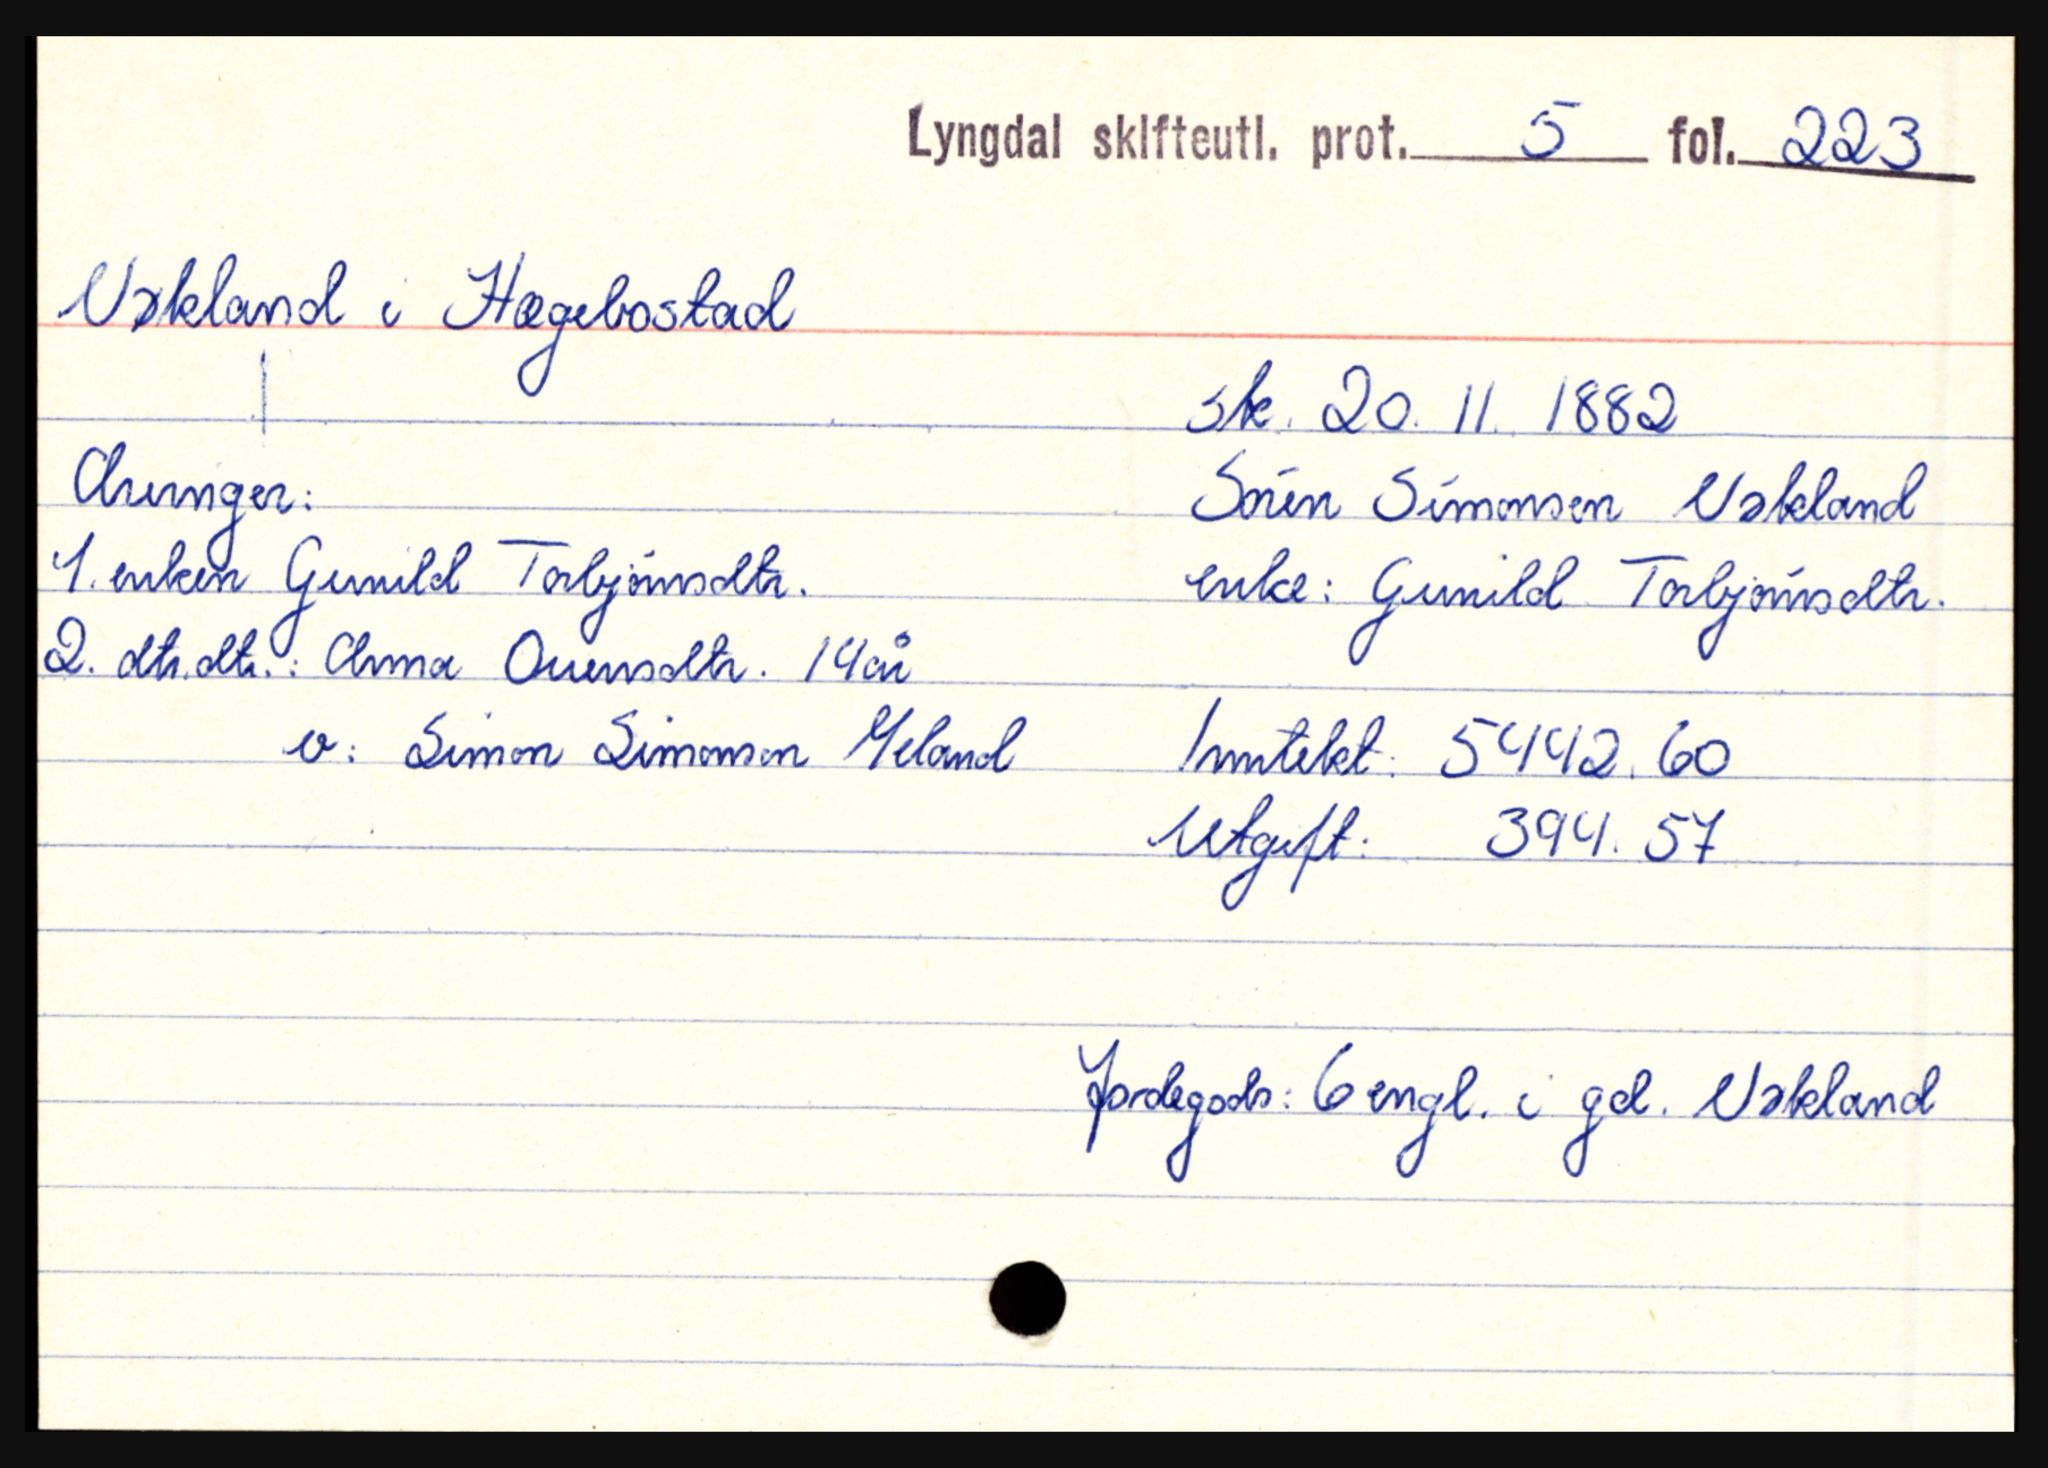 Lyngdal skifteutl. prot. 5 fol. 223
Vøkland i Hægebostad
sk. 20. 11. 1882
Arvinger:
Sören Simonsen Vøkland
1. enken Gunild Torbjörnsdtr.
enke: Gunild Torbjörnsdtr.
2. dtr.dtr.: Anna Ovensdtr. 14 år
v: Simon Simonsen Meland
Inntekt: 5442.60
Utgift: 394.57
Jordegods: 6 engl. i gd. Vøkland